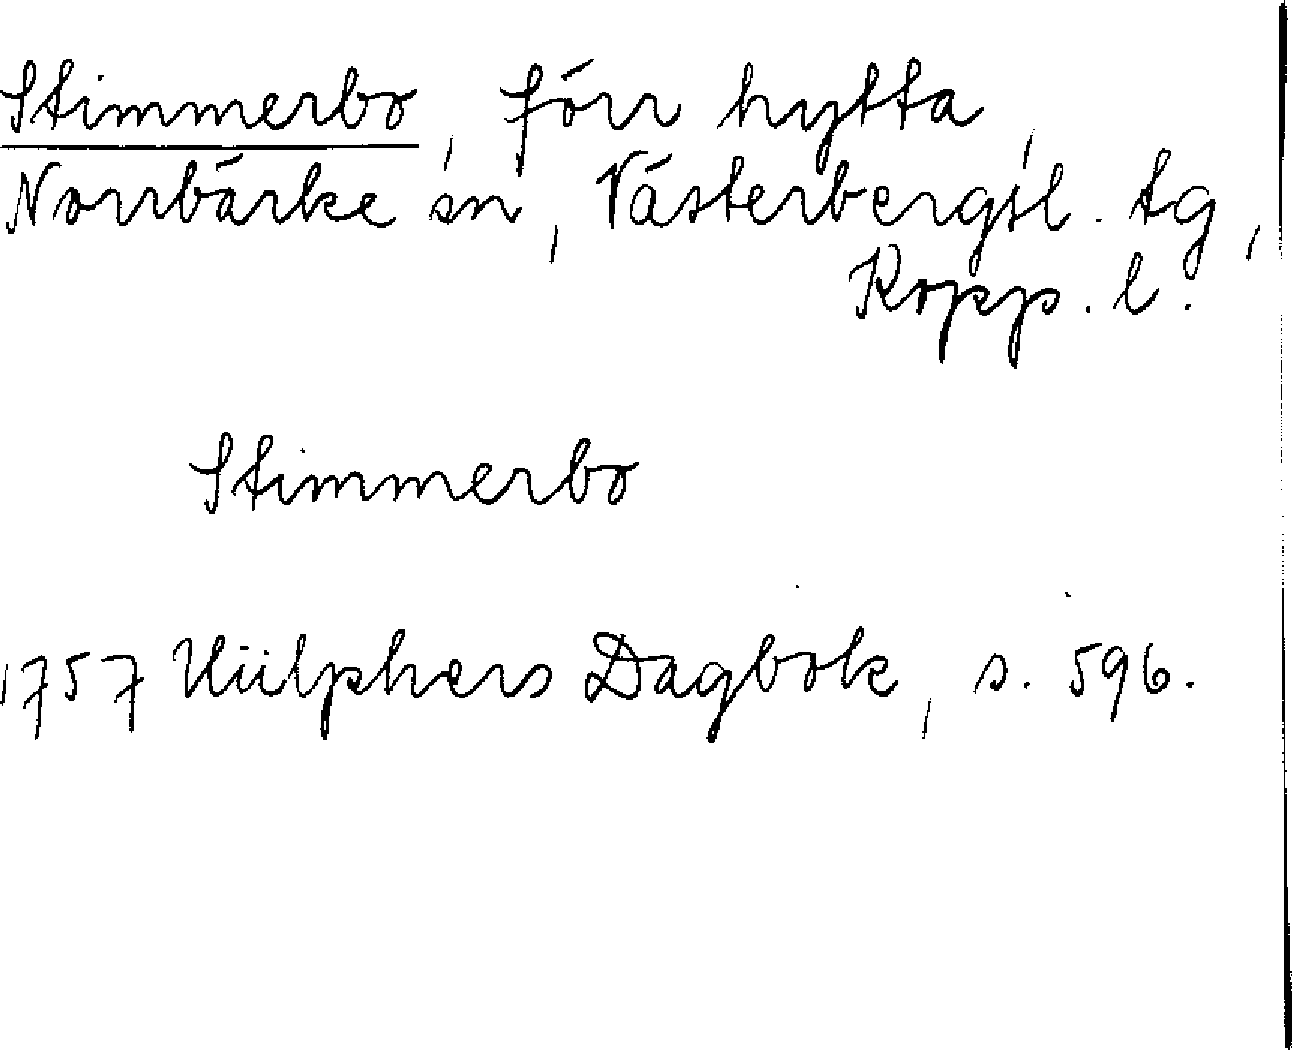 Stimmerbo, förr hytta,
Norrbärke sn, Västerbergsl. tg,
Kopp. l.
Stimmerbo
1757 Hülphers Dagbok, s. 596.